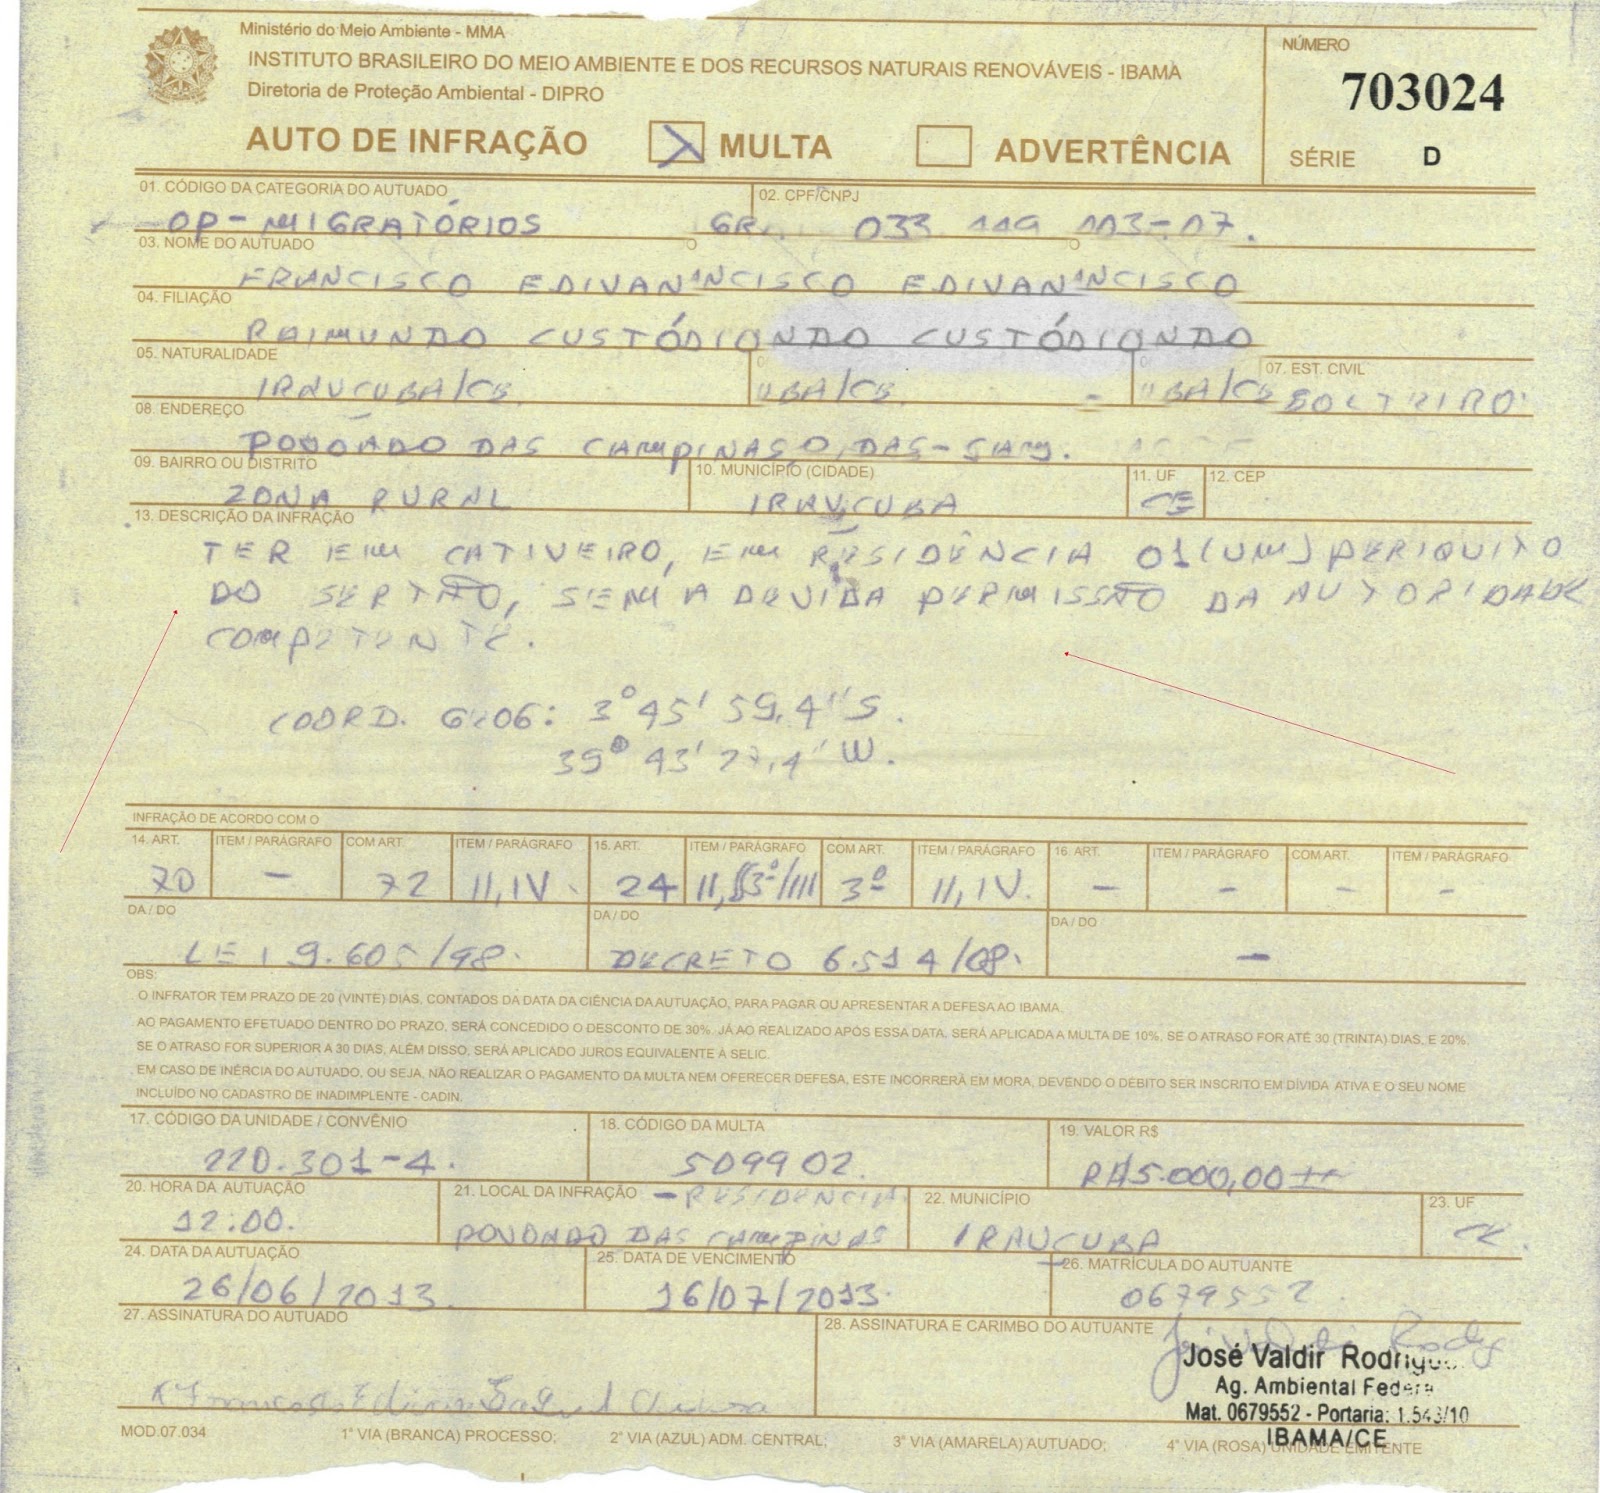 Ministério do Meio Ambiente - MMA
INSTITUTO BRASILEIRO DO MEIO AMBIENTE E DOS RECURSOS NATURAIS RENOVÁVEIS - IBAMA
Diretoria de Proteção Ambiental - DIPRO
AUTO DE INFRAÇÃO MULTA ADVERTÊNCIA
NÚMERO
703024
SÉRIE D
01. CÓDIGO DA CATEGORIA DO AUTUADO 02. CPF/CNPJ
OP-MIGRATÓRIOS GR 033 119 113-17.
03. NOME DO AUTUADO
FRANCISCO EDIVANANCISCO EDIVANANCISCO
04. FILIAÇÃO
RAIMUNDO CUSTÓDIONDO CUSTÓDIONDO
05. NATURALIDADE 07. EST. CIVIL
IRAUCUBA/CE. UBA/CE. - UBA/CE SOLTEIRO
08. ENDEREÇO
POVOADO DAS CAMPINAS
09. BAIRRO OU DISTRITO 10. MUNICÍPIO (CIDADE) 11. UF 12. CEP
ZONA RURAL IRAUCUBA CE
13. DESCRIÇÃO DA INFRAÇÃO
TER EM CATIVEIRO, EM RESIDÊNCIA 01 (UM) PERIQUITO
DO SERTÃO, SEM A DEVIDA PERMISSÃO DA AUTORIDADE
COMPETENTE.
COORD. GEOG: 3° 45' 59,4" S.
39° 43' 27,4" W.
INFRAÇÃO DE ACORDO COM O
14. ART. ITEM / PARÁGRAFO COM ART. ITEM / PARÁGRAFO 15. ART. ITEM / PARÁGRAFO COM ART. ITEM / PARÁGRAFO 16. ART. ITEM / PARÁGRAFO COM ART. ITEM / PARÁGRAFO
70 - 72 II, IV. 24 II, §3º/III 3º II, IV. - - - -
DA / DO DA / DO DA / DO
LEI 9.605/98. DECRETO 6.514/08. -
OBS:
O INFRATOR TEM PRAZO DE 20 (VINTE) DIAS, CONTADOS DA DATA DA CIÊNCIA DA AUTUAÇÃO, PARA PAGAR OU APRESENTAR A DEFESA AO IBAMA.
AO PAGAMENTO EFETUADO DENTRO DO PRAZO, SERÁ CONCEDIDO O DESCONTO DE 30%. JÁ AO REALIZADO APÓS ESSA DATA, SERÁ APLICADA A MULTA DE 10%, SE O ATRASO FOR ATÉ 30 (TRINTA) DIAS, E 20%,
SE O ATRASO FOR SUPERIOR A 30 DIAS, ALÉM DISSO, SERÁ APLICADO JUROS EQUIVALENTE À SELIC.
EM CASO DE INÉRCIA DO AUTUADO, OU SEJA, NÃO REALIZAR O PAGAMENTO DA MULTA NEM OFERECER DEFESA, ESTE INCORRERÁ EM MORA, DEVENDO O DÉBITO SER INSCRITO EM DÍVIDA ATIVA E O SEU NOME
INCLUÍDO NO CADASTRO DE INADIMPLENTE - CADIN.
17. CÓDIGO DA UNIDADE / CONVÊNIO 18. CÓDIGO DA MULTA 19. VALOR R$
220.301-4. 509902 R$5.000,00
20. HORA DA AUTUAÇÃO 21. LOCAL DA INFRAÇÃO - RESIDÊNCIA 22. MUNICÍPIO 23. UF
12:00. POVOADO DAS CAMPINAS IRAUCUBA CE.
24. DATA DA AUTUAÇÃO 25. DATA DE VENCIMENTO 26. MATRÍCULA DO AUTUANTE
26/06/2013 16/07/2013. 0679552
27. ASSINATURA DO AUTUADO 28. ASSINATURA E CARIMBO DO AUTUANTE
José Valdir
Ag. Ambiental
Mat. 0679552 - Portaria: 1.543/10
IBAMA/CE
MOD.07.034 1ª VIA (BRANCA) PROCESSO; 2ª VIA (AZUL) ADM. CENTRAL; 3ª VIA (AMARELA) AUTUADO; 4ª VIA (ROSA) UNIDADE EMITENTE